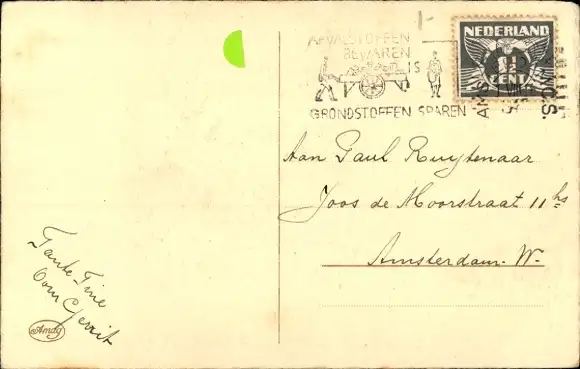 1-
AFVALSTOFFEN
BEWAREN
IS
GRONDSTOFFEN SPAREN
NEDERLAND
CENT
AMS
Aan Paul Ruijtenaar
Joos de Moorstraat 11 hs
Amsterdam-W.
Tante Tine
Oom Gerrit
Amag